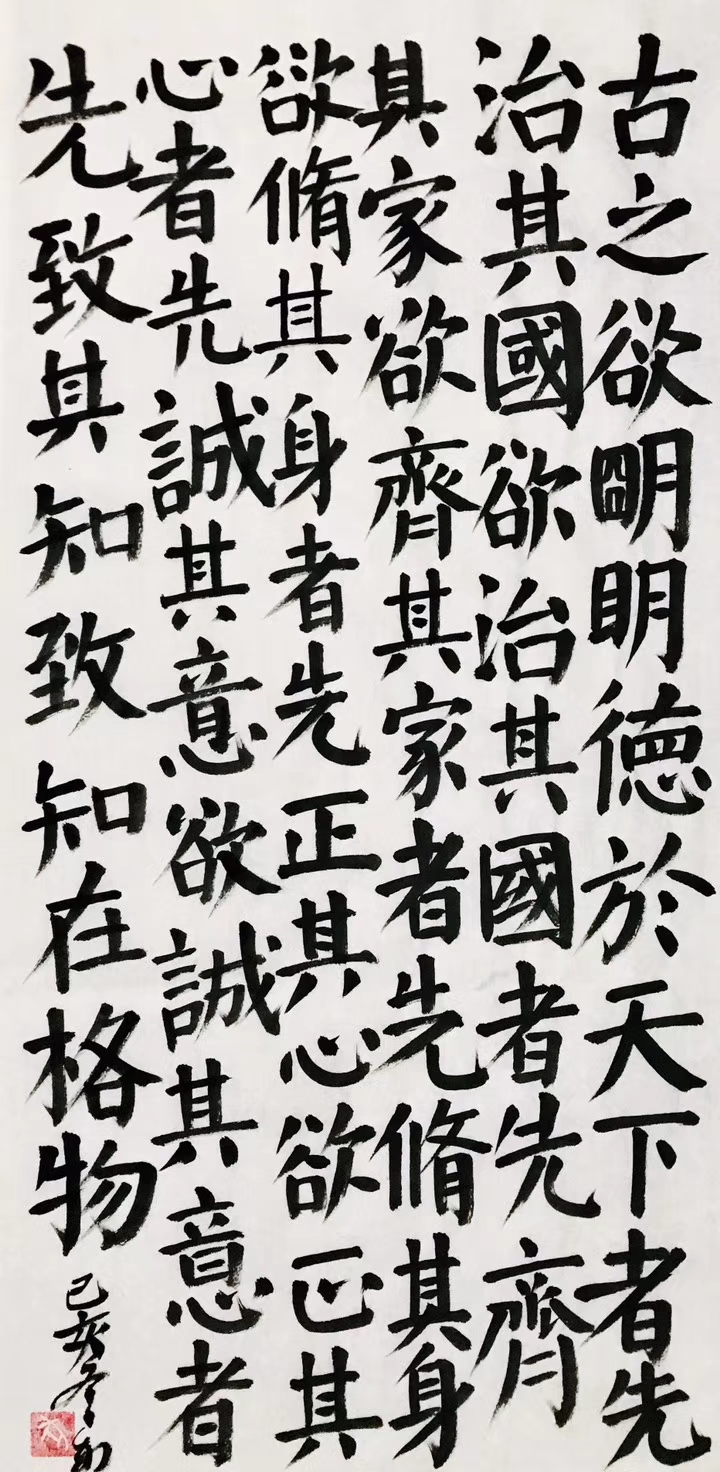 古之欲明明德於天下者先
治其國欲治其國者先齊
其家欲齊其家者先脩其身
欲脩其身者先正其心欲正其
心者先誠其意欲誠其意者
先致其知致知在格物
己亥冬